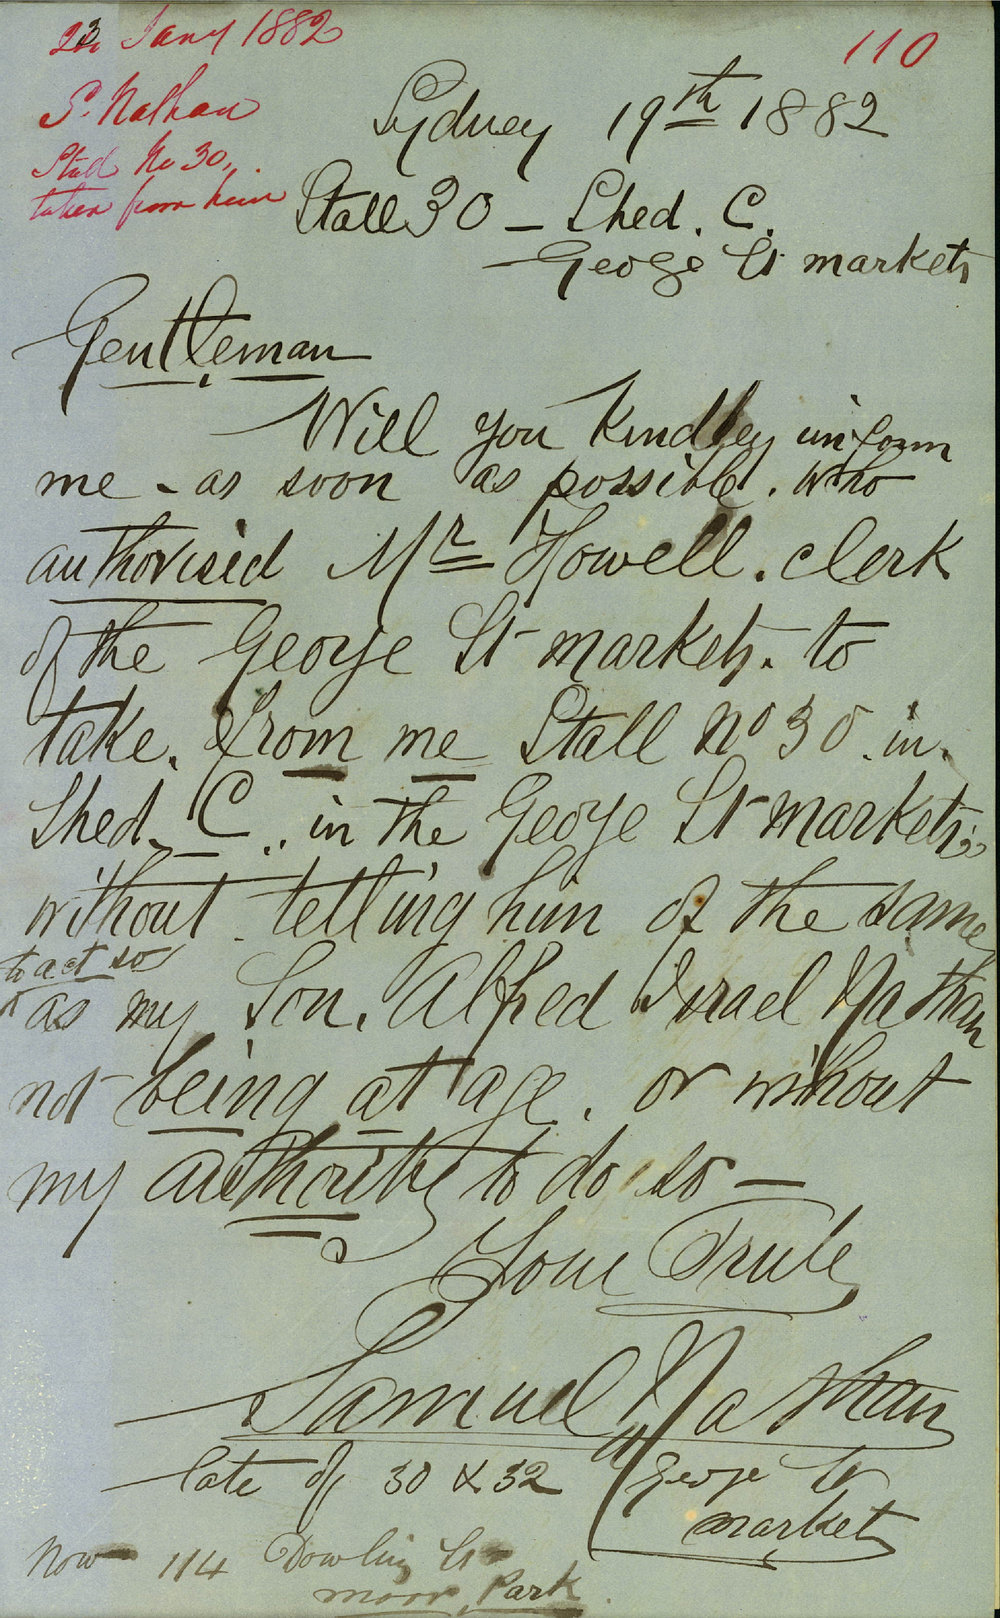 23 Jany 1882
110
S. Nathan
Stall No 30,
taken from him
Sydney 19th 1882
Stall 30 – Shed. C.
George St markets
Gentleman
Will you kindley inform
me - as soon as possible. who
authorised Mr Howell. clerk
of the George St markets. to
take. from me Stall No 30. in.
Shed. C .. in the George St markets
without telling him of the same
to act so
as my Son. Alfred Israel Nathan
not being at age. or without
my authority to do so —
Your Trule
Samuel Nathan
late of 30 & 32 George St
market
Now 114 Dowling St
moor Park